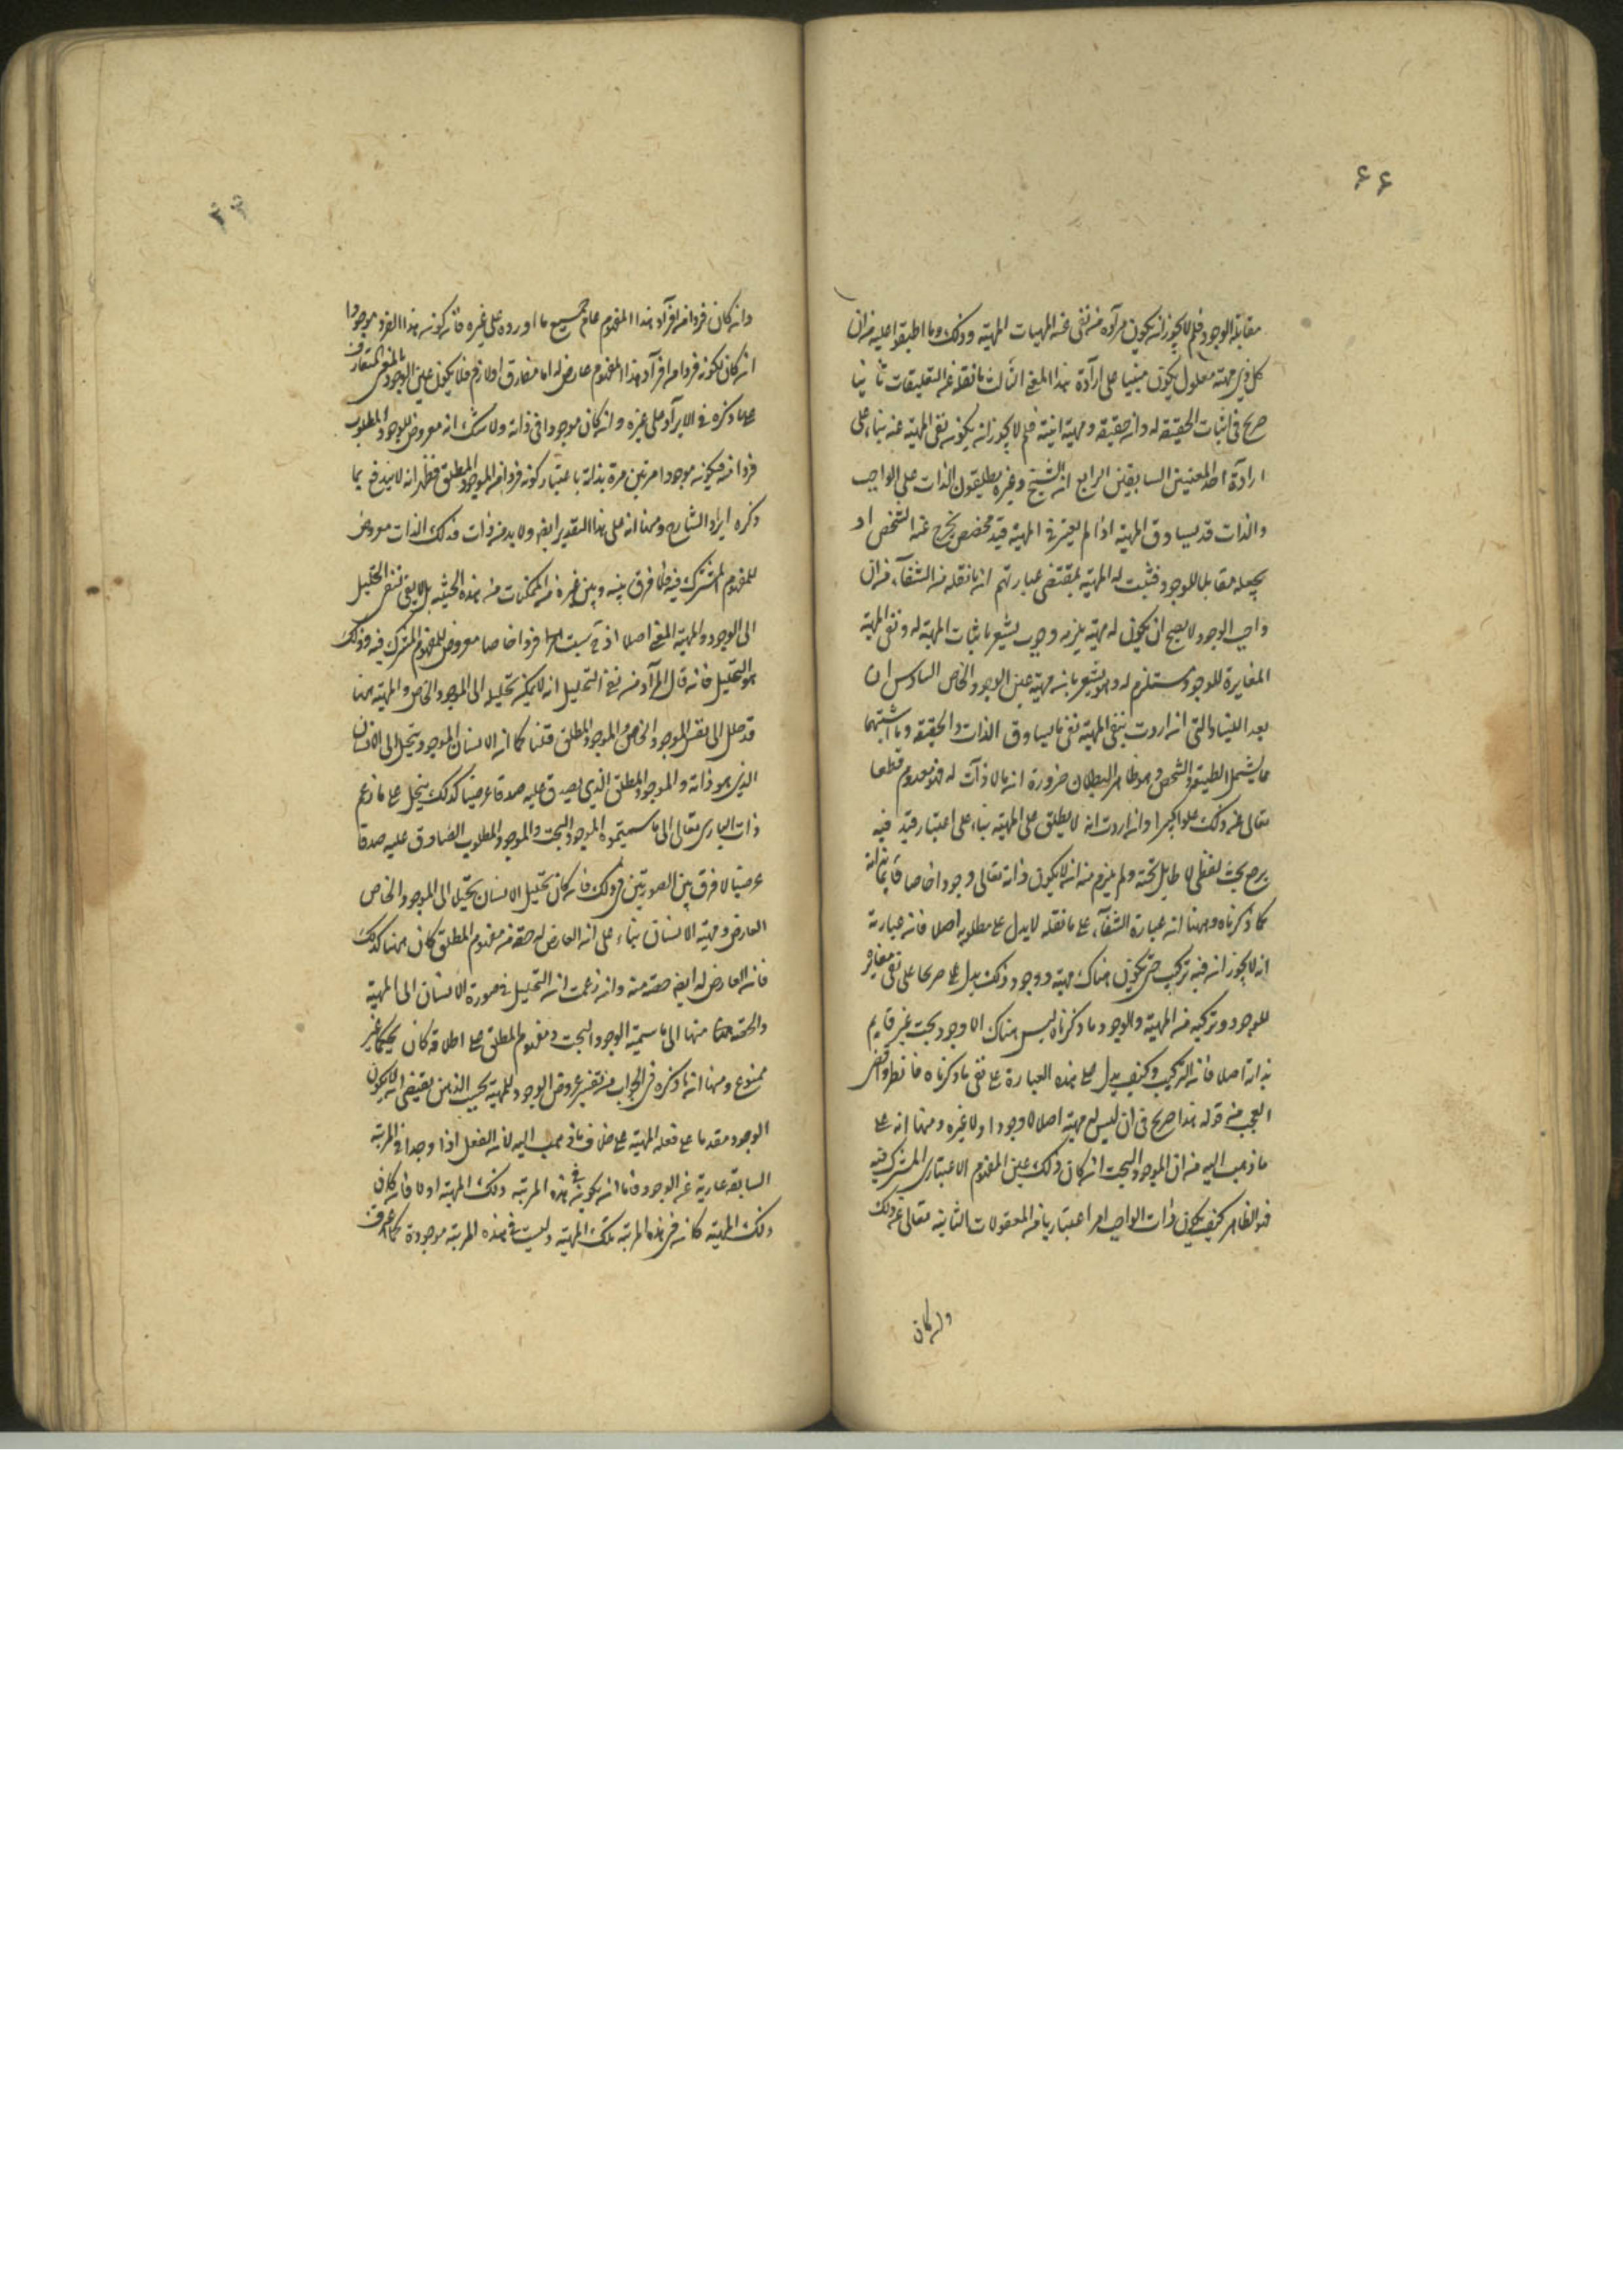 ۶۶
مقابلة الوجود فلم لا يجوز ان يكون مراده من نفى عنه المهيات المهية وذلك وما اطبقوا عليه من ان
كل ذى مهية معلول يكون مبنيا على ارادة هذا المعنى الثالث ما نقله عن التعليقات ثانيا
صريح فى اثبات الحقيقة له وانه حقيقة ومهية انية فلم لا يجوز ان يكون نفى المهية عنه بناء على
ارادة احد المعنيين السابقين الرابع ان الشيخ وغيره يطلقون الذات على الواجب
والذات قد يساوق المهية اذا لم يعتبر فى المهية قيد مخصص يخرج عنه الشخص او
يجعله مقابلا للوجود فثبت له المهية بمقتضى عبارتهم ان ما نقله من الشفآء من ان
واجب الوجود لا يصح ان يكون له مهية يلزمه وجوب يشعر باثبات المهية له ونفى المهية
المغايرة للوجود مستلزم له وهو يشعر بانه مهية عين الوجود الخاص السادس ان
بعد اللتيا والتى ان اردت بنفى المهية نفى ما يساوق الذات والحقيقة وما اشبههما
مما يشمل الطبيعة والشخص وهو ظاهر البطلان ضرورة ان ما لا ذات له فهو معدوم قطعا
تعالى عن ذلك علوا كبيرا وان اردت انه لا يطلق على المهية بناء على اعتبار قيد فيه
يرجع بحث لفظى لا طايل تحته ولم يلزم منه ان لا يكون ذاته تعالى وجودا خاصا قايما بذاته
كما ذكرناه ومنها ان عبارة الشفآء على ما نقله لا يدل على مطلوبه اصلا فان عبارته
انه لا يجوز ان فيه تركيب حتى يكون هناك مهية ووجود وذلك يدل على صريحا على نفى مغاير
للوجود وتركبه من المهية والوجود وما ذكرناه ليس هناك الا وجود بحت غير قايم
بذاته اصلا فانه التركيب وكيف يدل على هذه العبارة على نفى ما ذكرناه فانظر واقض
العجب من قوله هذا صريح فى ان ليس له مهية اصلا لا وجودا ولا غيره ومنها انه على
ما ذهب اليه من ان الموجود البحت ان كان ذلك عين المفهوم الاعتبارى المشترك فيه
فهو الظاهر كيف يكون ذات الواجب امرا اعتباريا من المعقولات الثانية تعالى عن ذلك
وان كان
وان كان فردا من افراد هذا المفهوم عام جميع ما اورده على غيره فان كونه هذا الفرد موجودا
ان كان لكونه فردا من افراد هذا المفهوم عارض له اما مفارق او لازم فلا يكون عين الوجود بالمعنى المتعارف
على ما ذكره فى الايراد على غيره وان كان موجودا فى ذاته ولا شك انه معروض للوجود المطلوب
فردا منه فيكون موجودا مرتين مرة بذاته باعتبار كونه فردا من الموجود المطلق فظهر انه لا يندفع بما
ذكره ايراد الشارح ومنها انه على هذا التقدير ايضا ولا بد من ذات فذلك الذات معروض
للمفهوم المشترك فيه فلا فرق بينه وبين غيره من الممكنات منه بهذه الحيثية بل لا يبقى لنفى التحليل
الى الوجود والمهية المعنى اصلا اذ فردا خاصا معروض للمفهوم المشترك فيه وذلك
هو التحليل فان قال المراد من نفى التحليل انه لا يمكن تحليله الى الموجود الخاص والمهية منها
قد حلل الى نفس الموجود الخاص والموجود المطلق قلنا كما ان الانسان الموجود يتحلل الى الانسان
الذى هو ذاته والموجود المطلق الذى يصدق عليه صدقا عرضيا كذلك ينحل على ما زعم
ذات البارى تعالى الى ما سميتموه الموجود البحت والموجود المطلوب الصادق عليه صدقا
عرضيا لا فرق بين الصورتين فى ذلك فان كان تحليل الانسان تحليلا الى الموجود الخاص
العارض ومهية الانسان بناء على ان العارض له حصة من مفهوم المطلق كان ههنا كذلك
فان العارض له ايضا حصة منه وان زعمت ان التحليل فى صورة الانسان الى المهية
والحصة ههنا منها الى ما سميته الوجود البحت ومفهوم المطلق على اطلاقه كان تحكما غير
ممنوع ومنها ان ما ذكره فى الجواب من تفسير عروض الوجود للمهية بحسب الذهن يقتضى ان لا يكون
الوجود مقدما على فعله المهية على خلاف ما ذهب اليه لان الفعل اذا وجدا فى المرتبة
السابقة عارية عن الوجود فاما ان يكون فى هذه المرتبة ذلك المهية او لا فان كان
ذلك المهية كانه فى هذه المرتبة تلك المهية وليست فى هذه المرتبة موجودة كما عرف